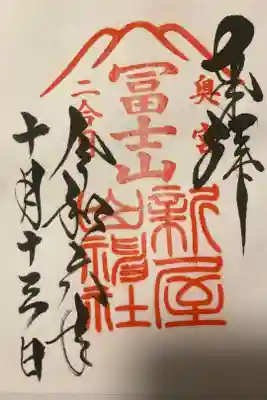 奉拝
奥宮
冨士山
新屋
山神社
二合目
令和
十月十三日